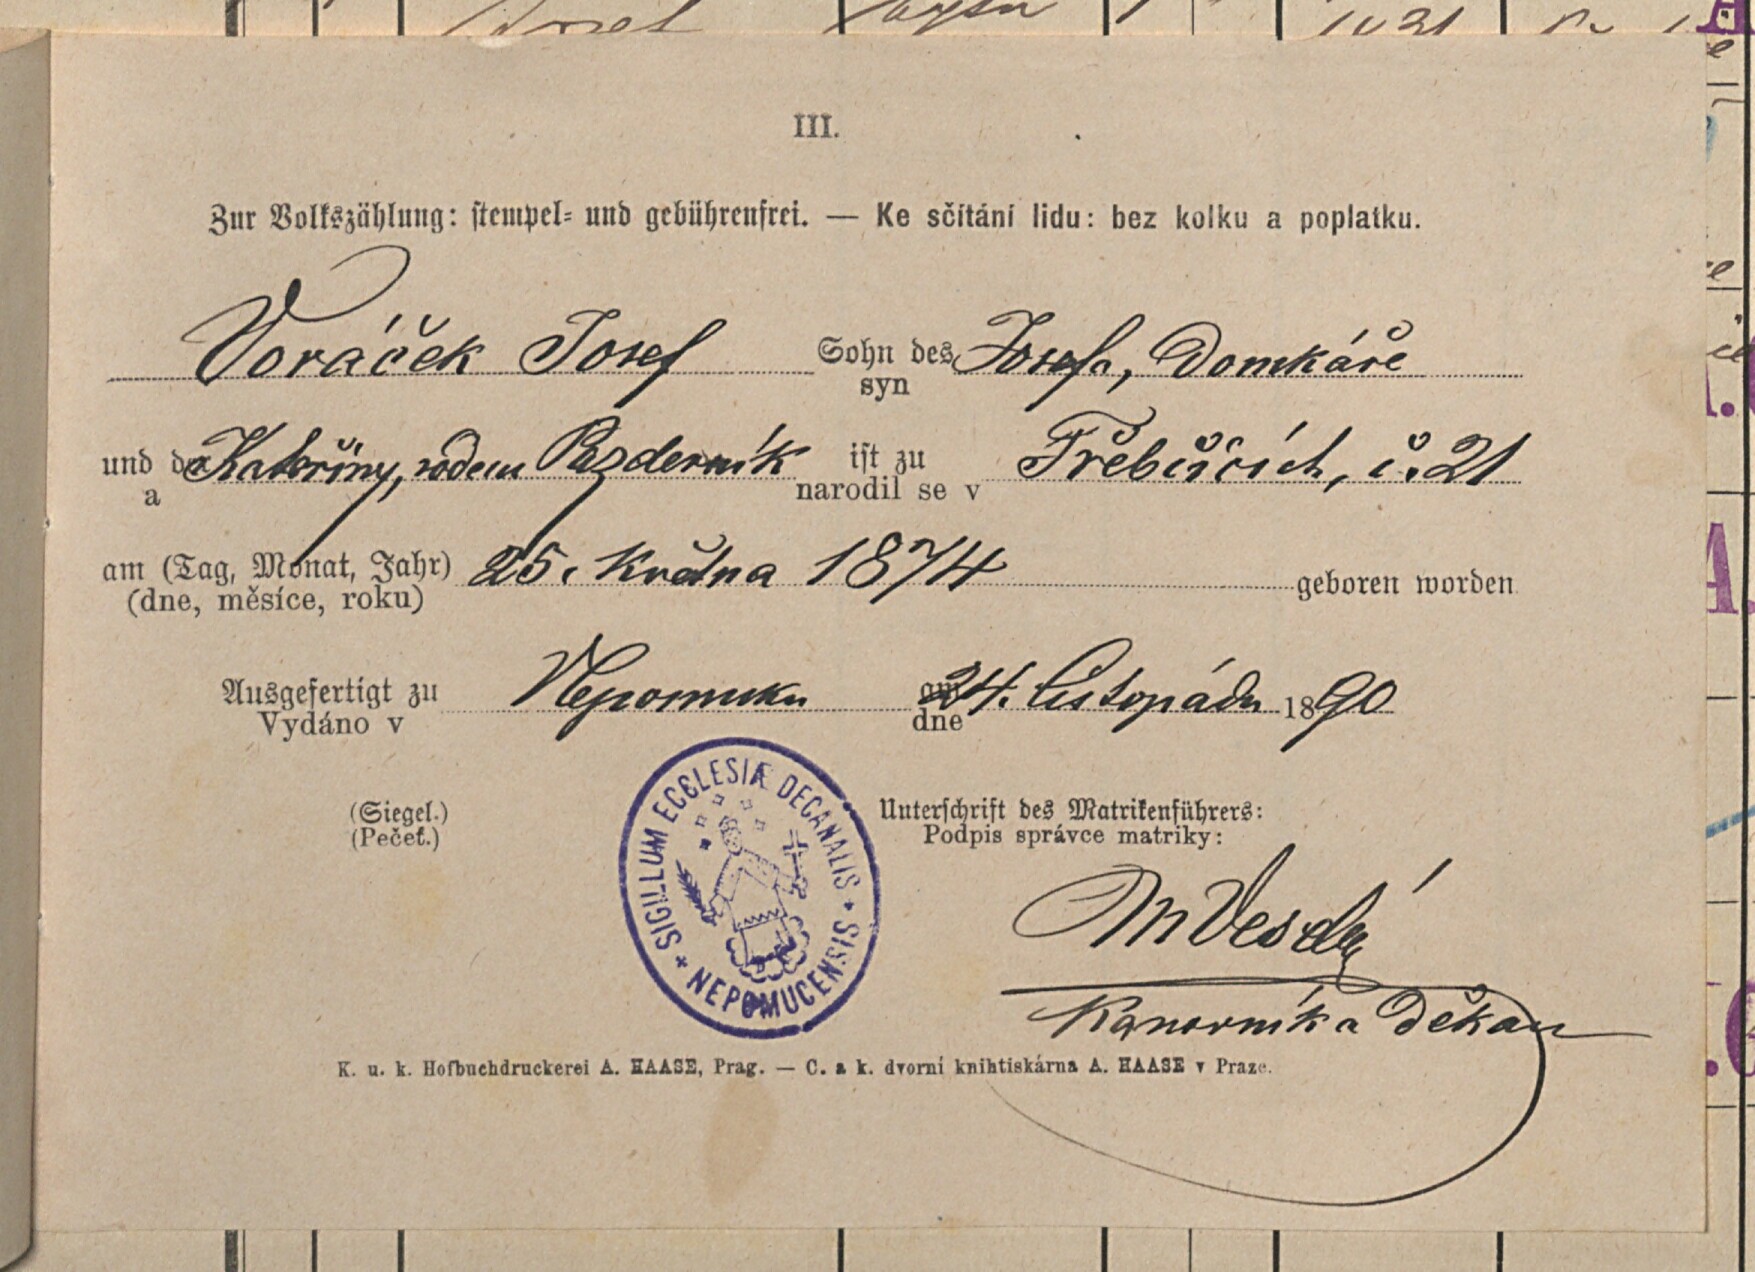 III.
Zur Volkszählung: stempel- und gebührenfrei. — Ke sčítání lidu: bez kolku a poplatku.
Voráček Josef Sohn des Josefa, Domkáře
syn
und der Kateřiny, rodem Pazderník ist zu Třebčicích, č. 21
a narodil se v
am (Tag, Monat, Jahr) 25. Května 1874 geboren worden
(dne, měsíce, roku)
Ausgefertigt zu Nepomuku am 24. listopadu 1890
Vydáno v dne
(Siegel.) Unterschrift des Matrikenführers:
(Pečeť.) Podpis správce matriky:
SIGILLUM ECCLESIÆ DECANALIS * NEPOMUCENSIS *
Kanovník a Děkan
K. u. k. Hofbuchdruckerei A. HAASE, Prag. — C. a k. dvorní knihtiskárna A. HAASE v Praze.